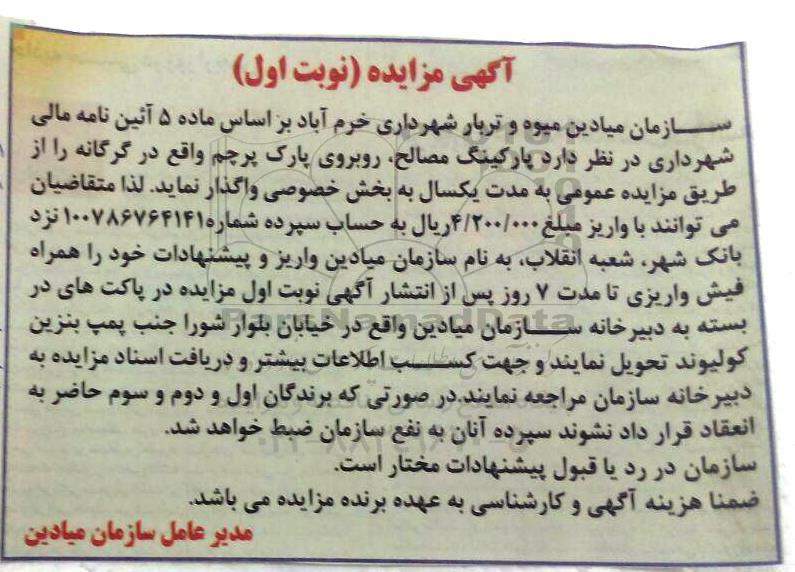 آگهی مزایده (نوبت اول)
سازمان میادین میوه و تربار شهرداری خرم آباد بر اساس ماده ۵ آئین نامه مالی
شهرداری در نظر دارد پارکینگ مصالح، روبروی پارک پرچم واقع در گرگانه را از
طریق مزایده عمومی به مدت یکسال به بخش خصوصی واگذار نماید. لذا متقاضیان
می توانند با واریز مبلغ ۴/۲۰۰/۰۰۰ریال به حساب سپرده شماره۱۰۰۷۸۶۷۶۴۱۴۱ نزد
بانک شهر، شعبه انقلاب، به نام سازمان میادین واریز و پیشنهادات خود را همراه
فیش واریزی تا مدت ۷ روز پس از انتشار آگهی نوبت اول مزایده در پاکت های در
بسته به دبیرخانه سازمان میادین واقع در خیابان بلوار شورا جنب پمپ بنزین
کولیوند تحویل نمایند و جهت کسب اطلاعات بیشتر و دریافت اسناد مزایده به
دبیرخانه سازمان مراجعه نمایند.در صورتی که برندگان اول و دوم و سوم حاضر به
انعقاد قرار داد نشوند سپرده آنان به نفع سازمان ضبط خواهد شد.
سازمان در رد یا قبول پیشنهادات مختار است.
ضمنا هزینه آگهی و کارشناسی به عهده برنده مزایده می باشد.
مدیر عامل سازمان میادین
ParsNamadData